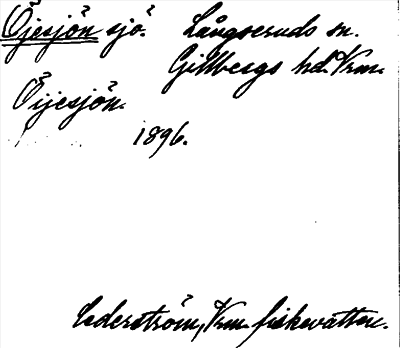 Öjesjön sjö. Långseruds sn.
Gillbergs hd. Vrm.
Öijesjön.
1896.
Cederström, Vrm. fiskevatten.